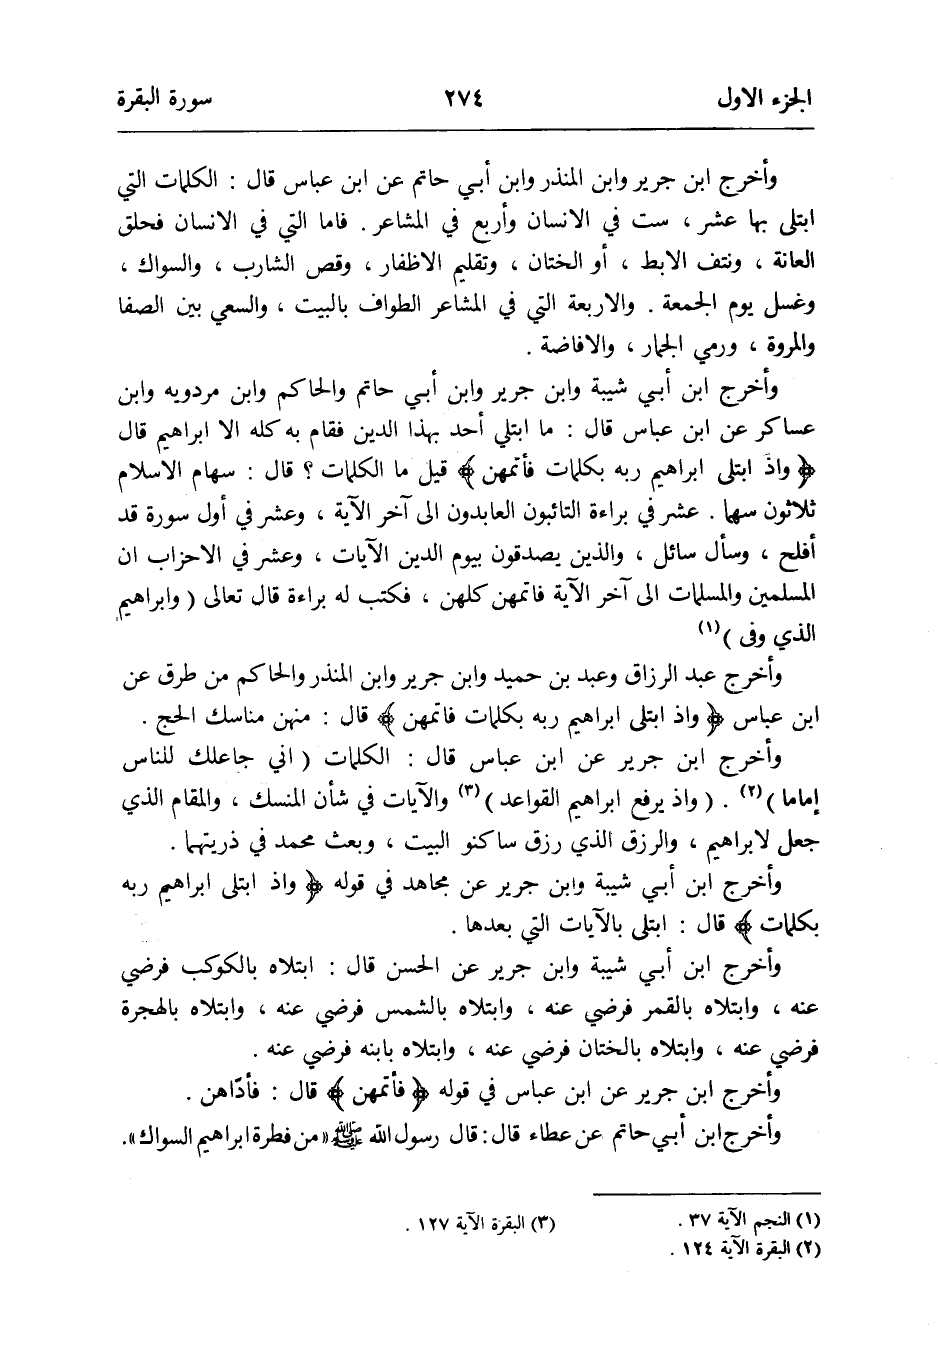 الجزء الاول ٢٧٤ سورة البقرة
وأخرج ابن جرير وابن المنذر وابن أبي حاتم عن ابن عباس قال : الكلمات التي
ابتلى بها عشر ، ست في الانسان وأربع في المشاعر . فاما التي في الانسان فحلق
العانة ، ونتف الابط ، أو الختان ، وتقليم الاظفار ، وقص الشارب ، والسواك ،
وغسل يوم الجمعة . والاربعة التي في المشاعر الطواف بالبيت ، والسعي بين الصفا
والمروة ، ورمي الجمار ، والافاضة .
وأخرج ابن أبي شيبة وابن جرير وابن أبي حاتم والحاكم وابن مردويه وابن
عساكر عن ابن عباس قال : ما ابتلي أحد بهذا الدين فقام به كله الا ابراهيم قال
﴿ واذ ابتلى ابراهيم ربه بكلمات فأتمهن ﴾ قيل ما الكلمات ؟ قال : سهام الاسلام
ثلاثون سهما . عشر في براءة التائبون العابدون الى آخر الآية ، وعشر في أول سورة قد
أفلح ، وسأل سائل ، والذين يصدقون بيوم الدين الآيات ، وعشر في الاحزاب ان
المسلمين والمسلمات الى آخر الآية فاتمهن كلهن ، فكتب له براءة قال تعالى ( وابراهيم
الذي وفى )(١)
وأخرج عبد الرزاق وعبد بن حميد وابن جرير وابن المنذر والحاكم من طرق عن
ابن عباس ﴿ واذ ابتلى ابراهيم ربه بكلمات فاتمهن ﴾ قال : منهن مناسك الحج .
وأخرج ابن جرير عن ابن عباس قال : الكلمات ( اني جاعلك للناس
إماما )(٢) . ( واذ يرفع ابراهيم القواعد )(٣) والآيات في شأن المنسك ، والمقام الذي
جعل لابراهيم ، والرزق الذي رزق ساكنو البيت ، وبعث محمد في ذريتهما .
وأخرج ابن أبي شيبة وابن جرير عن مجاهد في قوله ﴿ واذ ابتلى ابراهيم ربه
بكلمات ﴾ قال : ابتلى بالآيات التي بعدها .
وأخرج ابن أبي شيبة وابن جرير عن الحسن قال : ابتلاه بالكوكب فرضي
عنه ، وابتلاه بالقمر فرضي عنه ، وابتلاه بالشمس فرضي عنه ، وابتلاه بالهجرة
فرضي عنه ، وابتلاه بالختان فرضي عنه ، وابتلاه بابنه فرضي عنه .
وأخرج ابن جرير عن ابن عباس في قوله ﴿ فأتمهن ﴾ قال : فأدّاهن .
وأخرج ابن أبي حاتم عن عطاء قال : قال رسول الله ﷺ «من فطرة ابراهيم السواك».
(١) النجم الآية ٣٧ . (٣) البقرة الآية ١٢٧ .
(٢) البقرة الآية ١٢٤ .